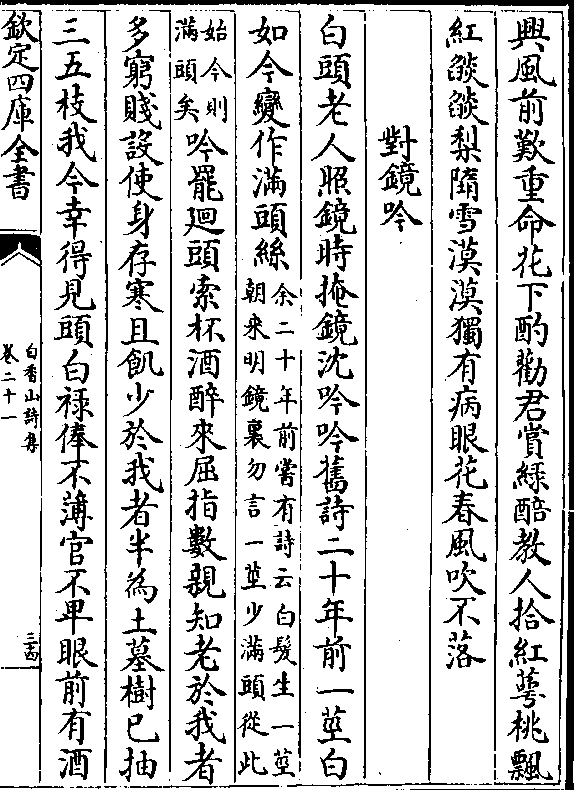 興風前歎重命花下酌勸君賞綠醅教人拾紅萼桃飄
紅燄燄梨隋雪漠漠獨有病眼花春風吹不落
對鏡吟
白頭老人照鏡時掩鏡沈吟吟舊詩二十年前一莖白
如今變作滿頭絲
余二十年前嘗有詩云白髮生一莖
朝來明鏡裏勿言一莖少滿頭從此
始今則
滿頭矣
吟罷迴頭索杯酒醉來屈指數親知老於我者
多窮賤設使身存寒且飢少於我者半為土墓樹已抽
三五枝我今幸得見頭白祿俸不薄官不卑眼前有酒
欽定四庫全書
白香山詩集
卷二十一
三古